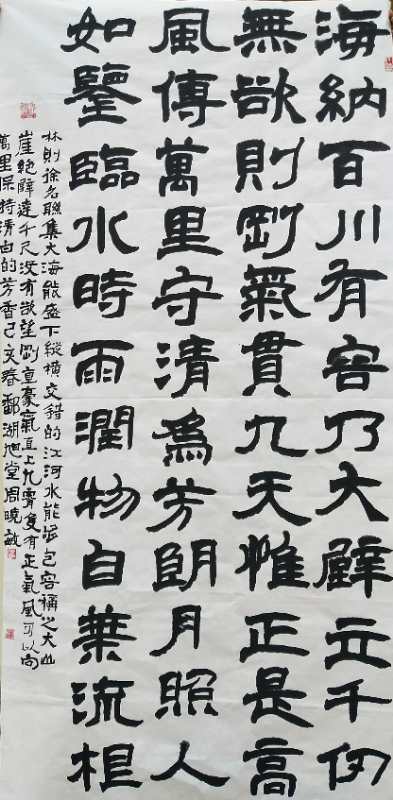 海納百川有容乃大壁立千仞
無欲則剛氣貫九天惟正是高
風傳萬里守清為芳朗月照人
如鑒臨水時雨潤物自葉流根
林則徐名聯集大海能盛下縱橫交錯的江河水能夠包容稱之大山
崖絕壁達千尺没有欲望剛直豪氣直上九霄隻有正氣風可以向
萬里保持清白的芳香己亥春鄱湖旭堂周曉敏